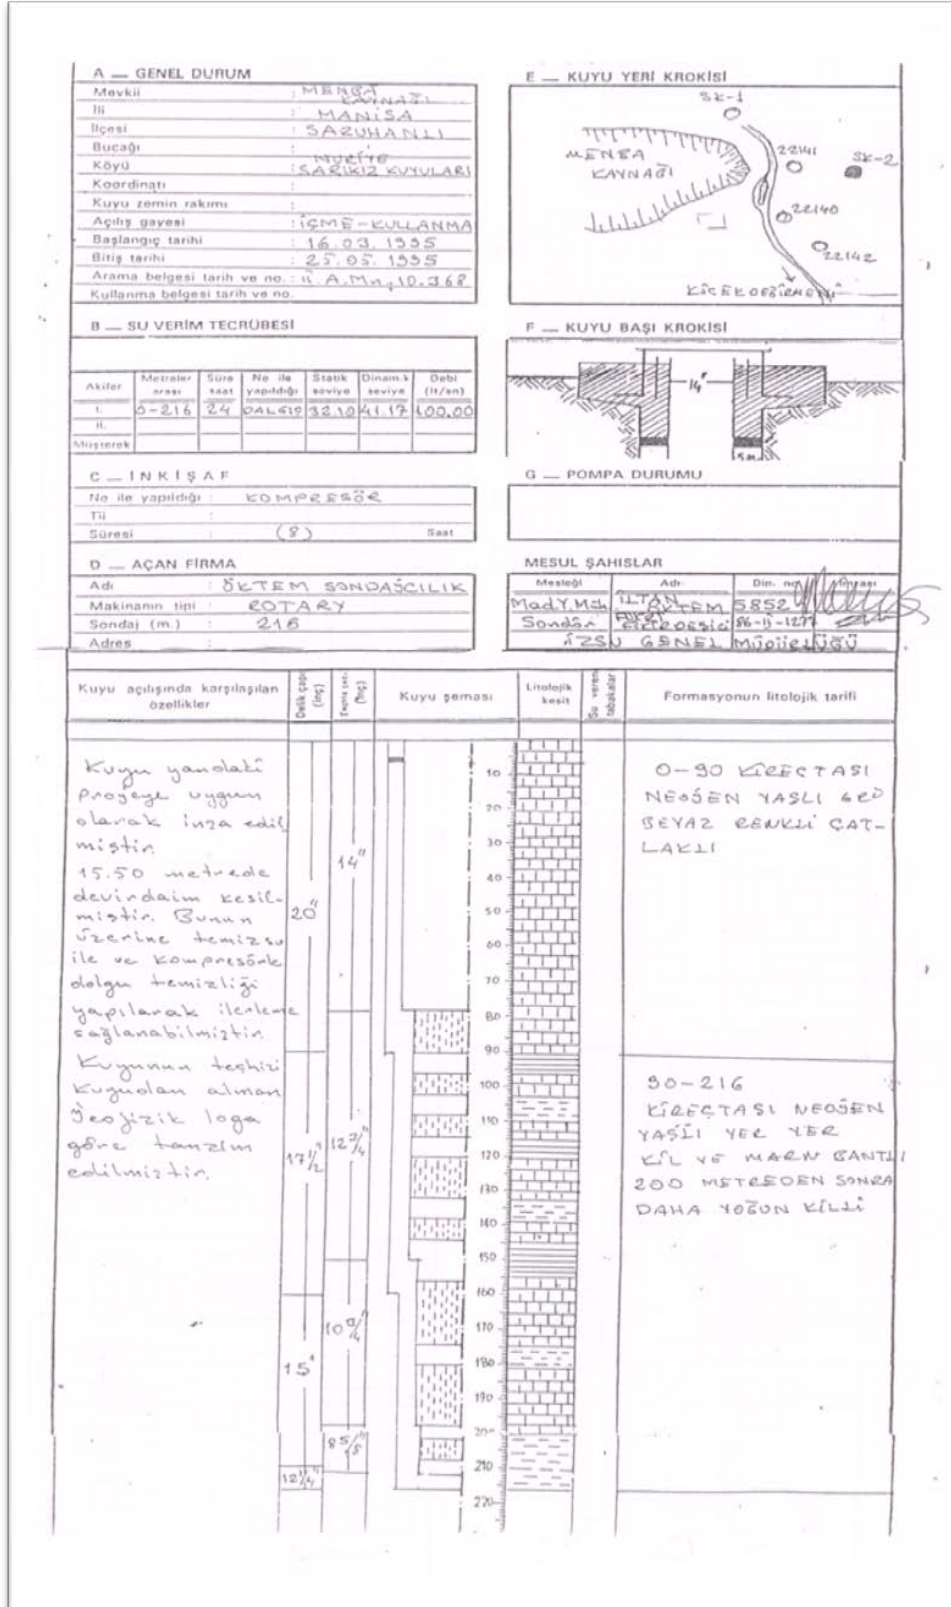 A — GENEL DURUM
Mevkii : MENBA KAYNAĞI
İli : MANİSA
İlçesi : SARUHANLI
Bucağı :
Köyü : NURİYE SARIKIZ KUYULARI
Koordinatı :
Kuyu zemin rakımı :
Açılış gayesi : İÇME-KULLANMA
Başlangıç tarihi : 16.03.1995
Bitiş tarihi : 25.05.1995
Arama belgesi tarih ve no. :
Kullanma belgesi tarih ve no.
B — SU VERİM TECRÜBESİ
Akifer Metreler arası Süre saat Ne ile yapıldığı Statik seviye Dinamik seviye Debi (lt/sn)
I. 0-216 24 DALGIÇ 32.10 41.17 100.00
II.
Müşterek
C — İNKİŞAF
Ne ile yapıldığı : KOMPRESÖR
Tli :
Süresi : (8) Saat
D — AÇAN FİRMA
Adı : ÖKTEM SONDAJCILIK
Makinanın tipi : ROTARY
Sondaj (m.) : 216
Adres :
E — KUYU YERİ KROKİSİ
SK-1
MENBA KAYNAĞI
22141
SK-2
22140
22142
F — KUYU BAŞI KROKİSİ
14"
5m
G — POMPA DURUMU
MESUL ŞAHISLAR
Mesleği Adı Dip. no İmzası
Mad.Y.Müh. İLTAN ÖKTEM 5852
Sondör
İZSU GENEL MÜDÜRLÜĞÜ
Kuyu açılışında karşılaşılan özellikler
Delik çapı (inç)
Teçhiz çapı (inç)
Kuyu şeması
Litolojik kesit
Su veren tabakalar
Formasyonun litolojik tarifi
Kuyu yandaki
projeye uygun
olarak inşa edil
miştir.
15.50 metrede
devirdaim kesil-
miştir. Bunun
üzerine temizsu
ile ve kompresörle
dolgu temizliği
yapılarak ilerleme
sağlanabilmiştir.
Kuyunun teçhizi
kuyudan alınan
jeofizik loga
göre tanzim
edilmiştir.
20"
17 1/2"
15"
12 1/4"
14"
12 3/4"
10 3/4"
8 5/8"
10
20
30
40
50
60
70
80
90
100
110
120
130
140
150
160
170
180
190
200
210
220
0-90 KİREÇTAŞI
NEOJEN YAŞLI GRİ
BEYAZ RENKLİ ÇAT-
LAKLI
90-216
KİREÇTAŞI NEOJEN
YAŞLI YER YER
KİL VE MARN BANTLI
200 METREDEN SONRA
DAHA YOĞUN KİLLİ